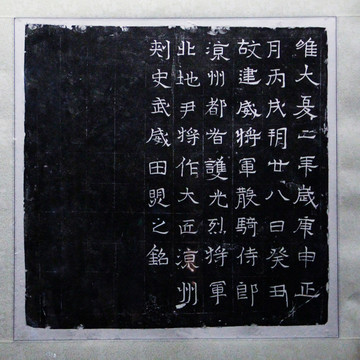 唯大夏二年歲庚申正
月丙戌朔廿八日癸丑
故建威將軍散騎侍郎
涼州都督護光烈將軍
北地尹將作大匠涼州
刺史武威田煚之銘